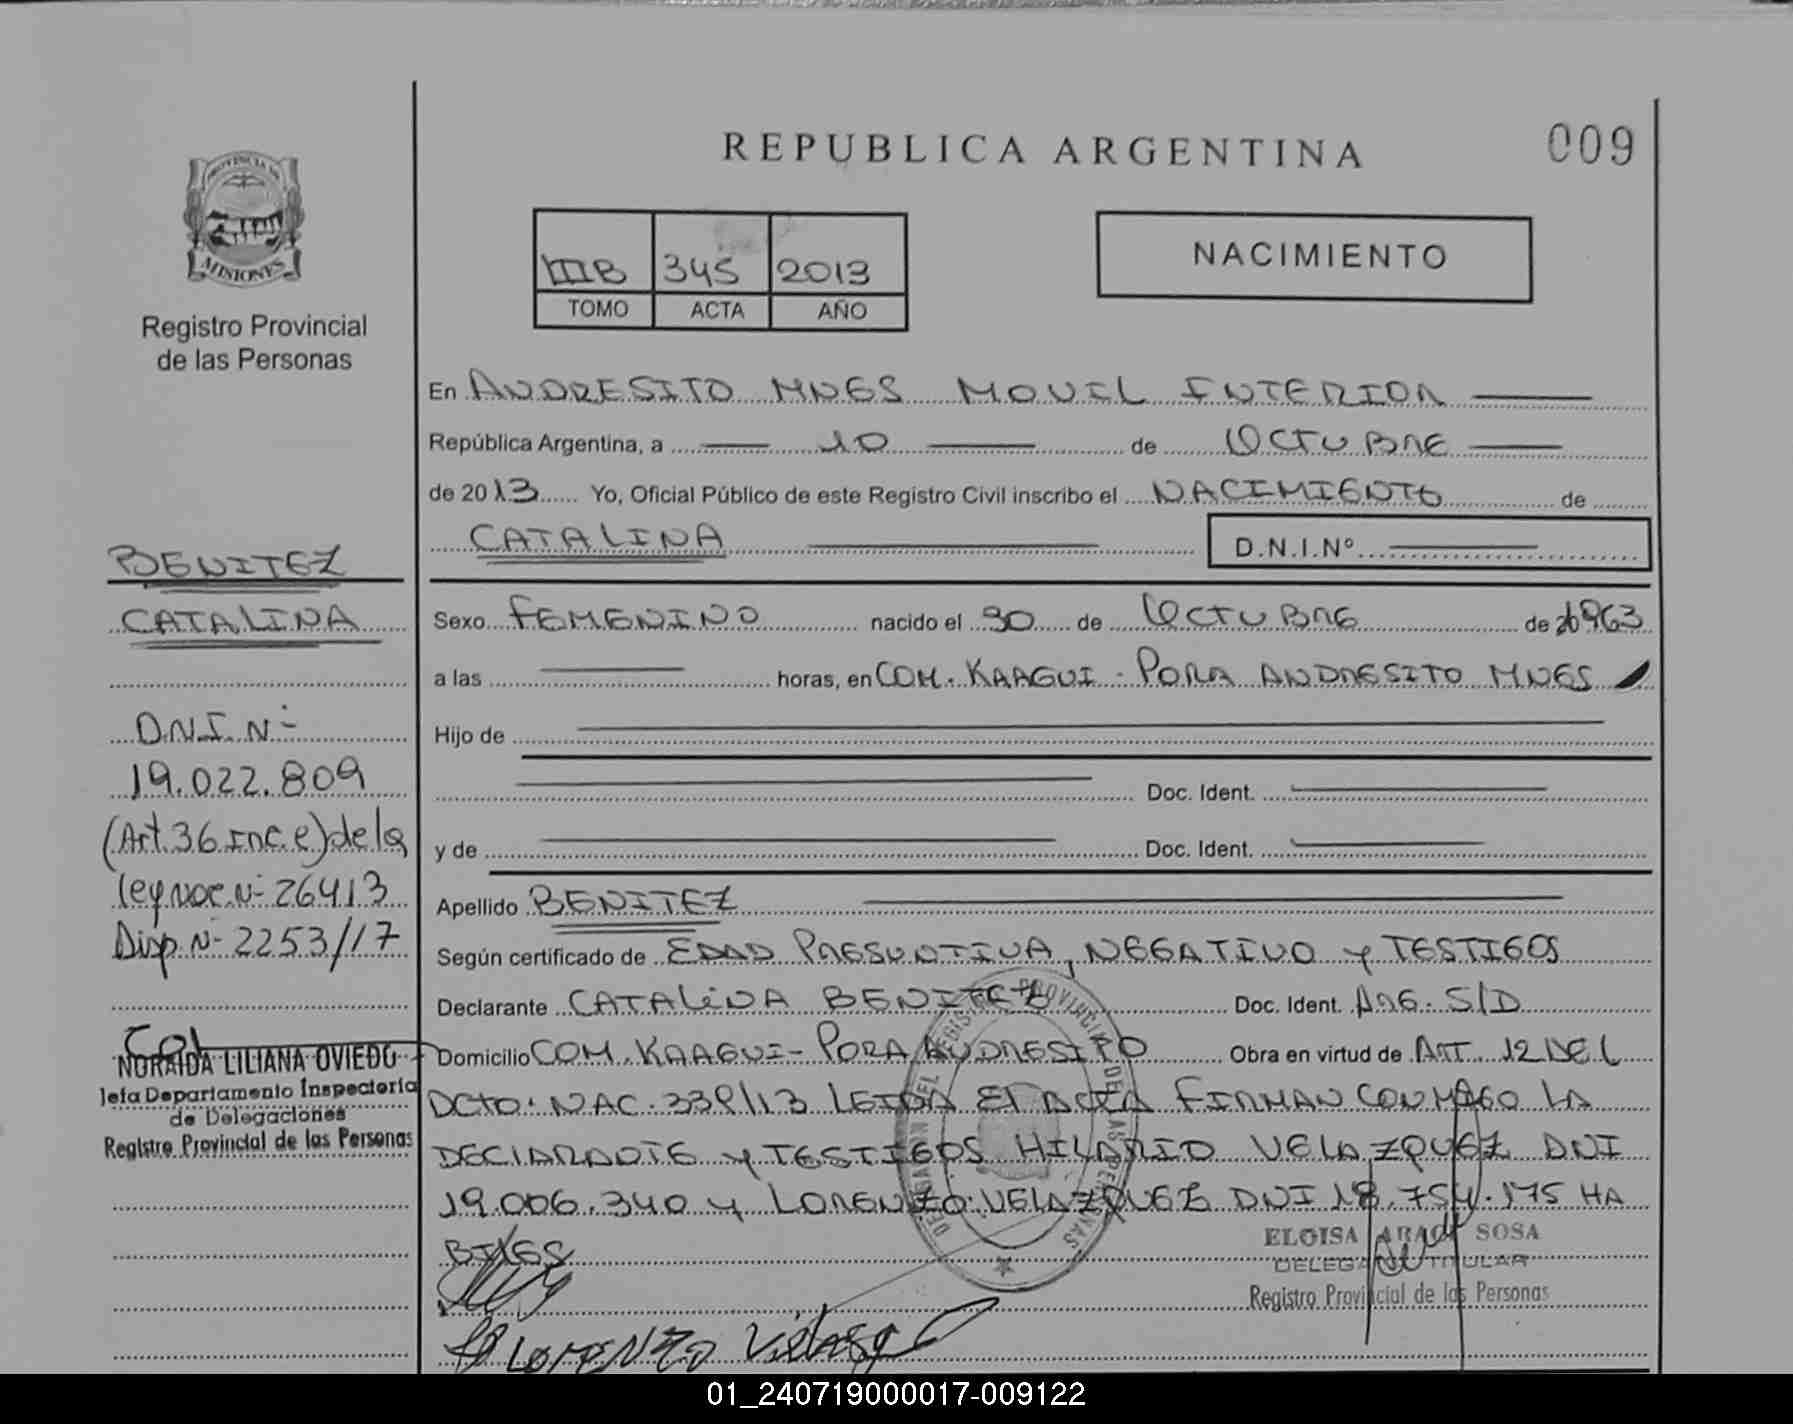 REPUBLICA ARGENTINA
009
PROVINCIA DE
MISIONES
Registro Provincial
de las Personas
IIIB 345 2013
TOMO ACTA AÑO
NACIMIENTO
En ANDRESITO MNES MOVIL INTERIOR
República Argentina, a 10 de OCTUBRE
de 2013 Yo, Oficial Público de este Registro Civil inscribo el NACIMIENTO de
CATALINA
D.N.I.Nº
BENITEZ
CATALINA
D.N.I. N-
19.022.809
(Art. 36 inc. e) de la
ley Noc. N- 26413
Disp. N- 2253/17
NORAIDA LILIANA OVIEDO
Jefa Departamento Inspectoria
de Delegaciones
Registro Provincial de las Personas
Sexo FEMENINO nacido el 30 de OCTUBRE de 1963
a las horas, en COM. KAAGUI - PORA ANDRESITO MNES
Hijo de
Doc. Ident.
y de Doc. Ident.
Apellido BENITEZ
Según certificado de EDAD PRESUNTIVA, NEGATIVO y TESTIGOS
Declarante CATALINA BENITEZ Doc. Ident. ARG. S/D
Domicilio COM. KAAGUI - PORA ANDRESITO Obra en virtud de ART. 12 DEL
DCTO. NAC. 339/13 LEIDA EL ACTA FIRMAN CONMIGO LA
DECLARANTE y TESTIGOS HILARIO VELAZQUEZ DNI
19.006.340 y LORENZO VELAZQUEZ DNI 18.754.175 HA
BILES
ELOISA SOSA
DELEGADA TITULAR
Registro Provincial de las Personas
LORENZO
01_240719000017-009122